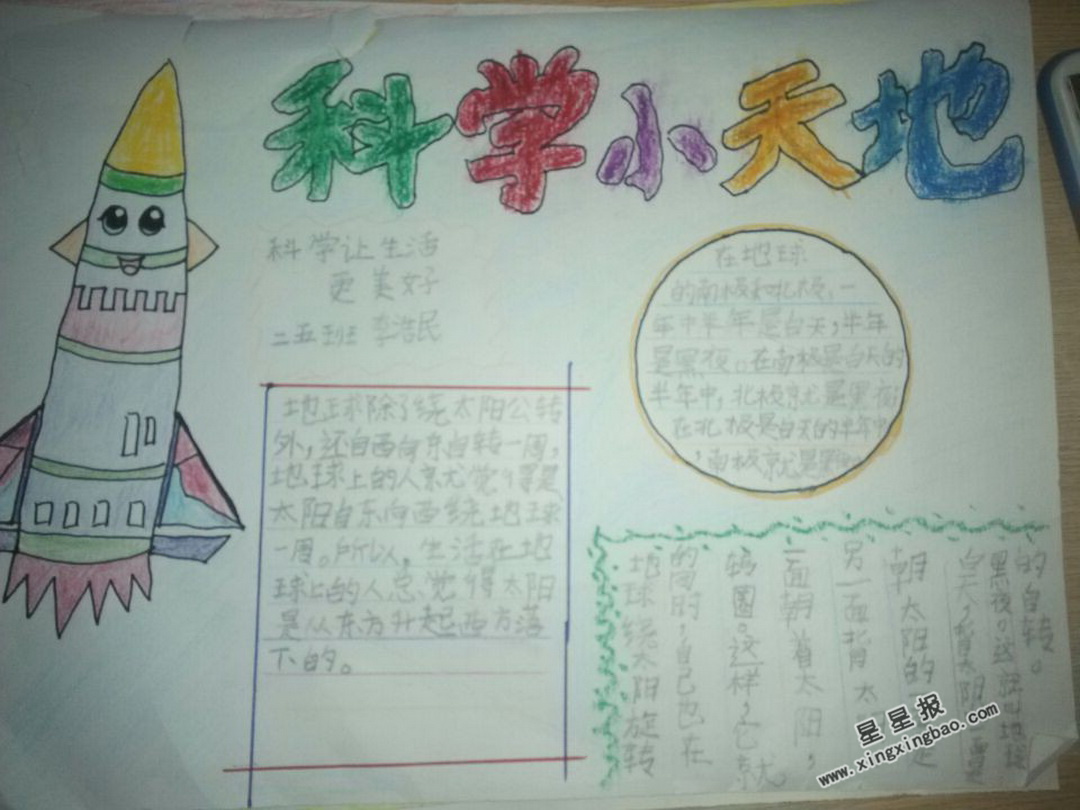 科学小天地
科学让生活
更美好
二五班 李浩民
在地球
的南极和北极,一
年中半年是白天,半年
是黑夜。在南极是白天的
半年中,北极就是黑夜
在北极是白天的半年中
,南极就是黑
地球除了绕太阳公转
外,还自西向东自转一周,
地球上的人就觉得是
太阳自东向西绕地球
一周。所以,生活在地
球上的人总觉得太阳
是从东方升起西方落
下的。
地球绕太阳旋转
的同时,自己也在
转圈。这样,它就
一面朝着太阳,
另一面背太
朝太阳的是
白天,背太阳面
黑夜。这就是地球
的自转。
星星报
www.xingxingbao.com